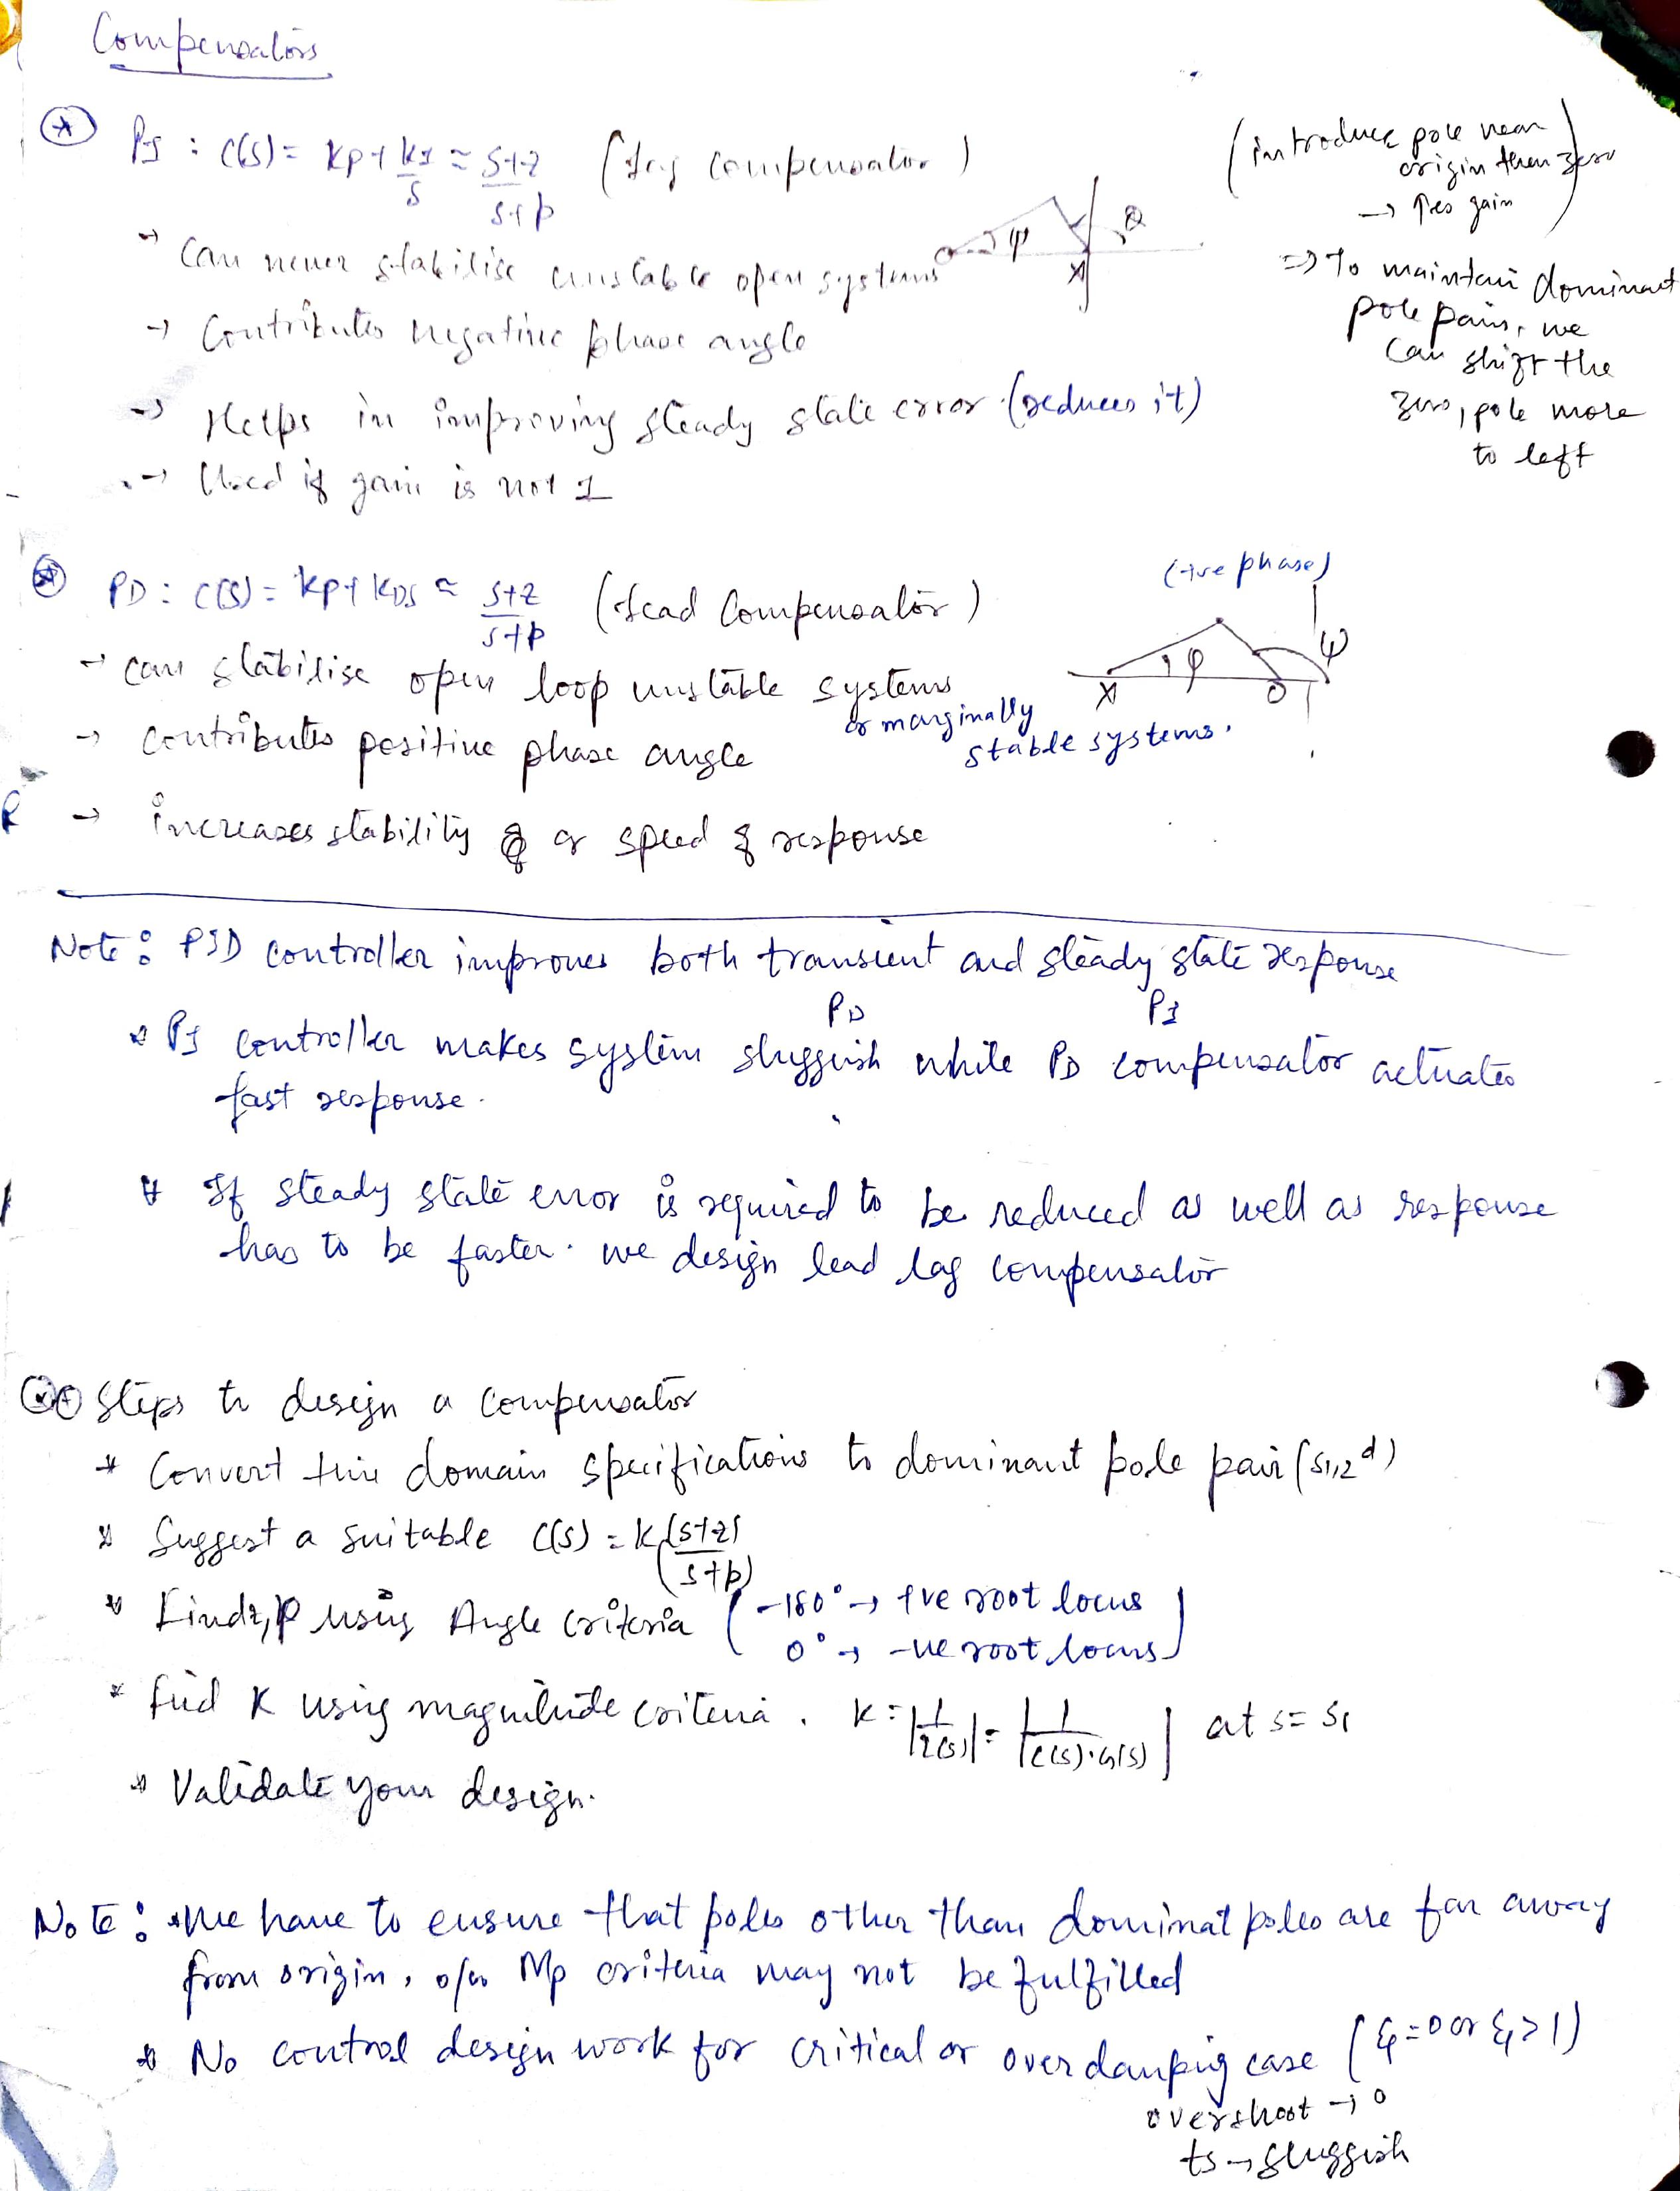 Compensators
PI : C(s) = Kp + KI/s ≈ (s+z)/(s+p) (Lag compensator)
(introduce pole near
origin then zero
→ ↑es gain)
φ θ
→ Can never stabilise unstable open systems
→ Contributes negative phase angle
→ Helps in improving steady state error (reduces it)
→ Used if gain is not 1
⇒ To maintain dominant
pole pairs, we
can shift the
zero, pole more
to left
PD : C(s) = Kp + KDs ≈ (s+z)/(s+p) (Lead Compensator)
(+ve phase)
φ ψ
→ can stabilise open loop unstable systems
or marginally
stable systems.
→ Contributes positive phase angle
→ increases stability & or speed of response
Note : PID controller improves both transient and steady state response
PD PI
* PI controller makes system sluggish while PD compensator actuates
fast response.
* If steady state error is required to be reduced as well as response
has to be faster. we design lead lag compensator
Steps to design a compensator
* Convert time domain specifications to dominant pole pair (s1,2 d)
* Suggest a suitable C(s) = K (s+z)/(s+p)
* Find z, p using Angle criteria (-180° → +ve root locus
0° → -ve root locus)
* find K using magnitude criteria. K = |1/L(s)| = |1/C(s)·G(s)| at s = s1
* Validate your design.
Note : * We have to ensure that poles other than dominat poles are far away
from origin, o/w Mp criteria may not be fulfilled
* No control design work for critical or overdamping case (ξ=0 or ξ>1)
overshoot → 0
ts → sluggish